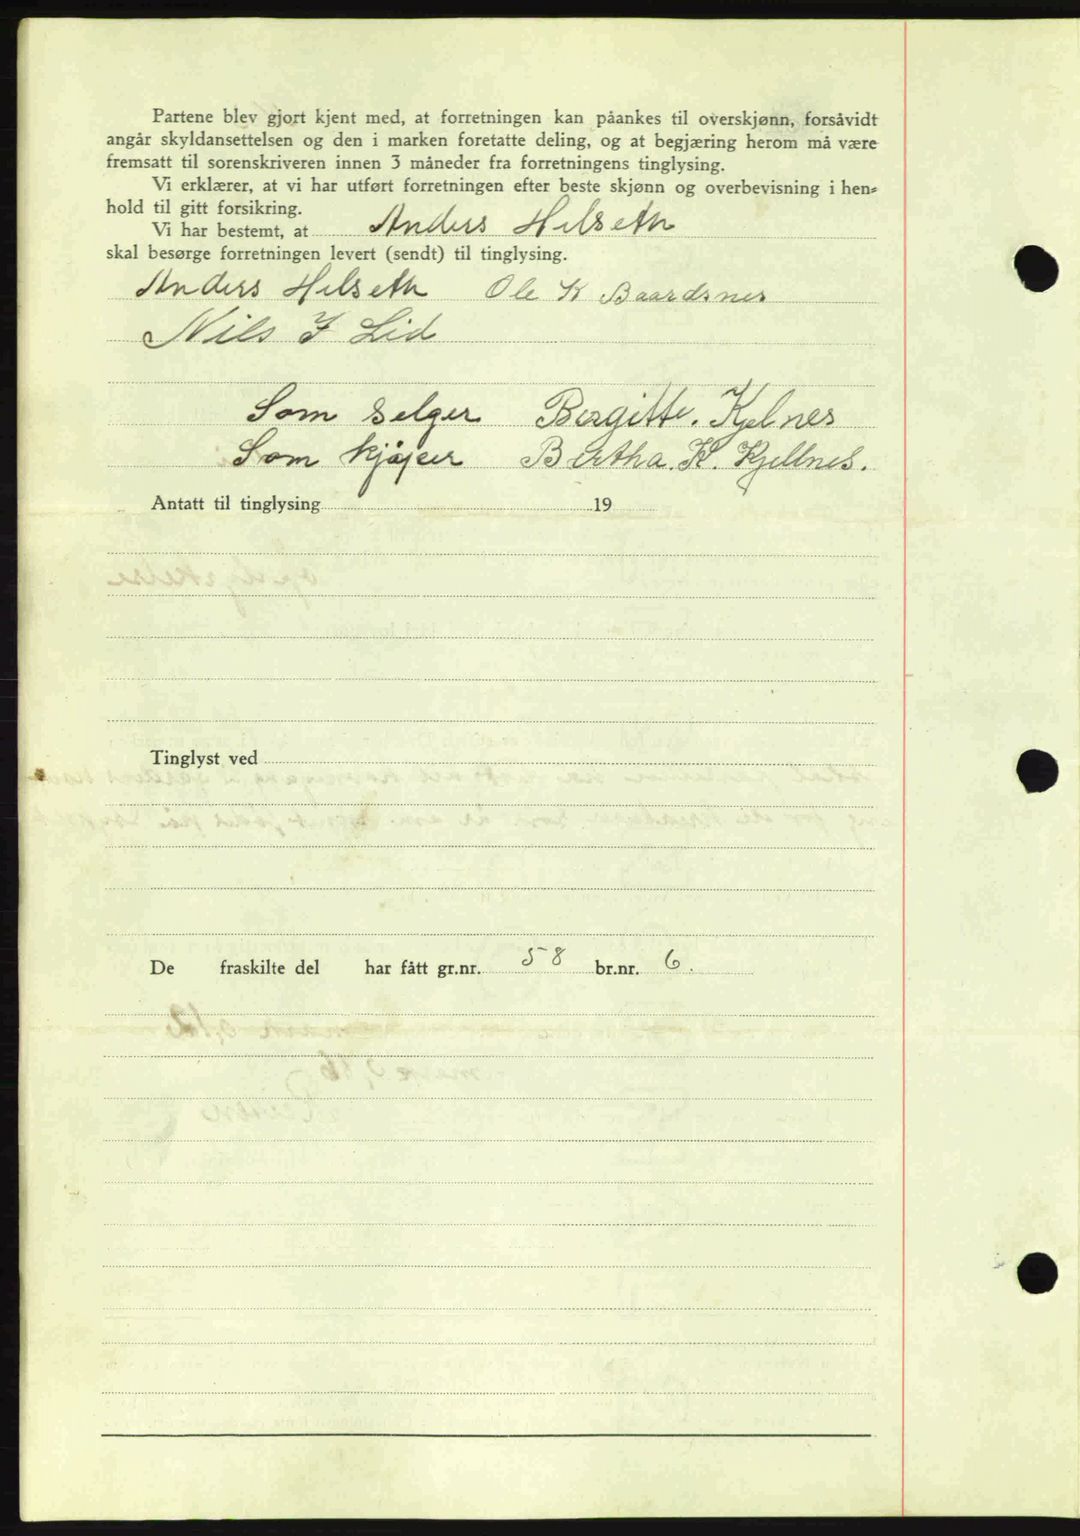 Partene blev gjort kjent med, at forretningen kan påankes til overskjønn, forsåvidt
angår skyldansettelsen og den i marken foretatte deling, og at begjæring herom må være
fremsatt til sorenskriveren innen 3 måneder fra forretningens tinglysing.
Vi erklærer, at vi har utført forretningen efter beste skjønn og overbevisning i hen-
hold til gitt forsikring.
Vi har bestemt, at Anders Helseth
skal besørge forretningen levert (sendt) til tinglysing.
Anders Helseth Ole K Baardsnes
Nils J Lid
Som selger Bergitte. Kjelnes
Som kjøper Bertha. K. Kjellnes.
Antatt til tinglysing 19
Tinglyst ved
De fraskilte del har fått gr.nr. 58 br.nr. 6.